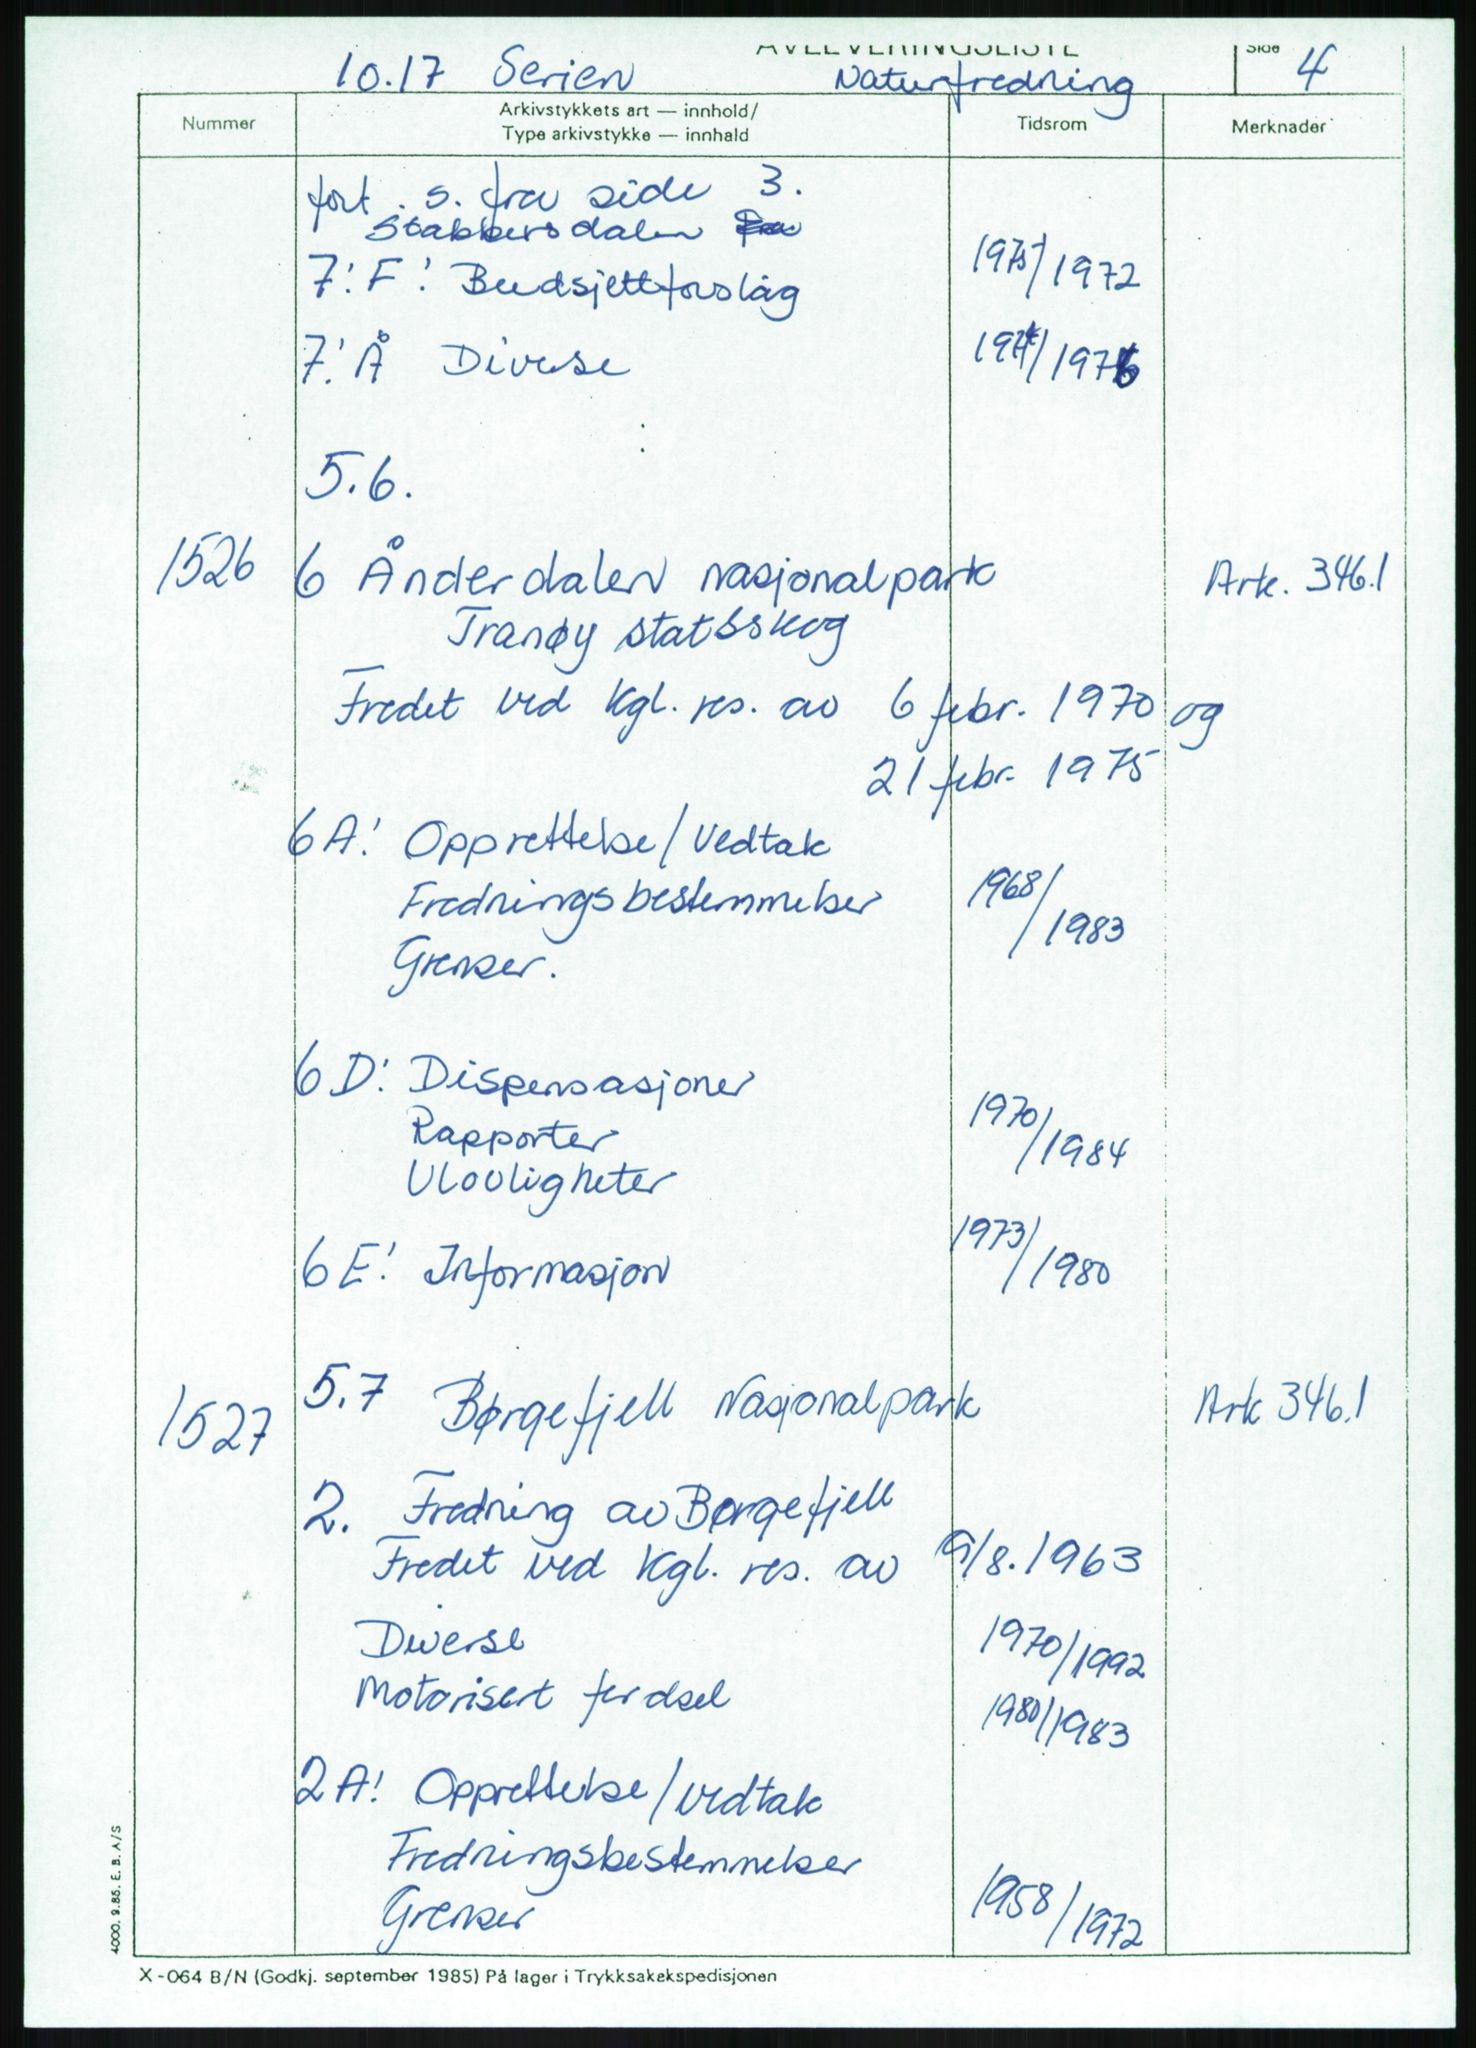 AVLEVERINGSLISTE Side 4
10.17 Serien Naturfredning
Nummer Arkivstykkets art — innhold/ Tidsrom Merknader
Type arkivstykke — innhald
fort. s. fra side 3.
Stabbersdalen
7: F: Budsjettforslag /1972
7: Å Diverse
5.6.
1526 6 Ånderdalen nasjonalpark Ark. 346.1
Tranøy statsskog
Fredet ved Kgl. res. av 6 febr. 1970 og
21 febr. 1975
6 A: Opprettelse/Vedtak
Fredningsbestemmelser 1968/1983
Grenser.
6 D: Dispensasjoner
Rapporter 1970/1984
Ulovligheter
6 E: Informasjon 1973/1980
5.7 Børgefjell Nasjonalpark Ark 346.1
1527
2. Fredning av Børgefjell
Fredet ved Kgl. res. av 9/8.1963
Diverse 1970/1992
Motorisert ferdsel 1980/1983
2 A: Opprettelse/vedtak
Fredningsbestemmelser
Grenser 1958/1972
4000. 9.85. E. B. A/S
X-064 B/N (Godkj. september 1985) På lager i Trykksakekspedisjonen